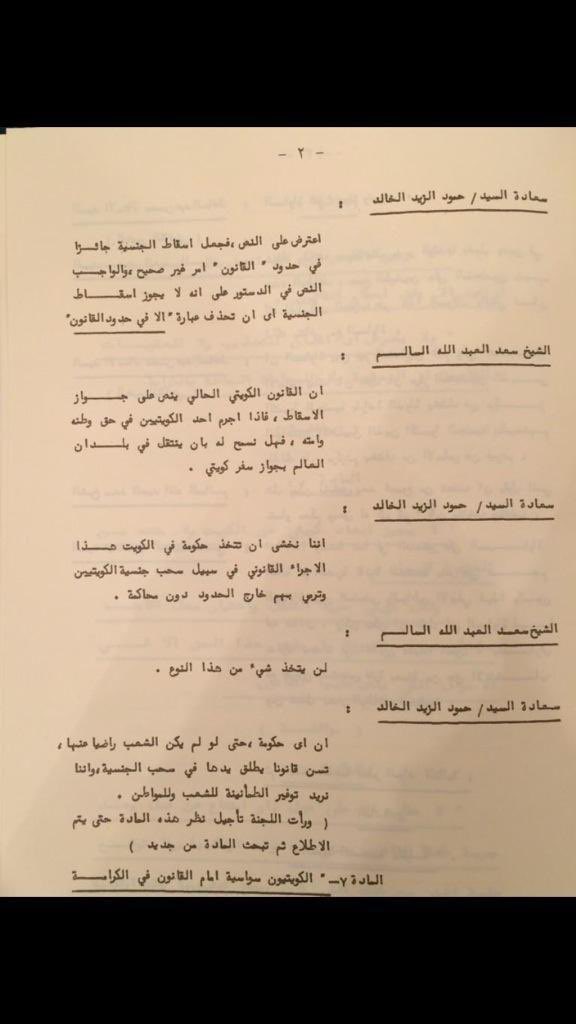 - ٢ -
سعادة السيد/ حمود الزيد الخالد :
اعترض على النص ،فجعل اسقاط الجنسية جائـزا
في حدود " القانون " امر غير صحيح ،والواجـب
النص في الدستور على انه لا يجوز اسقــــاط
الجنسية اى ان تحذف عبارة "الا في حدود القانون"
الشيخ سعد العبد الله السالـــم :
ان القانون الكويتي الحالي ينص على جــــواز
الاسقاط ، فاذا اجرم احد الكويتيين في حق وطنه
وامته ، فهل نسمح له بان ينتقل في بلــــدان
العالم بجواز سفر كويتي .
سعادة السيد/ حمود الزيد الخالد :
اننا نخشى ان تتخذ حكومة في الكويت هـــــذا
الاجراء القانوني في سبيل سحب جنسية الكويتيين
وترمي بهم خارج الحدود دون محاكمة .
الشيخ سعد العبد الله السالــم :
لن يتخذ شيء من هذا النوع .
سعادة السيد/ حمود الزيد الخالد :
ان اى حكومة ،حتى لو لم يكن الشعب راضيا عنها،
تسن قانونا يطلق يدها في سحب الجنسية ،واننا
نريد توفير الطمأنينة للشعب وللمواطن .
( ورأت اللجنة تأجيل نظر هذه المادة حتى يتم
الاطلاع ثم تبحث المادة من جديد )
المادة ٧- " الكويتيون سواسية امام القانون في الكرامــة